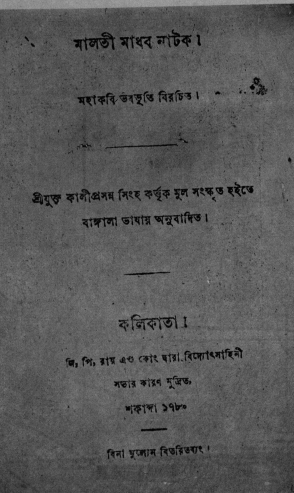 মালতী মাধব নাটক।
মহাকবি ভবভূতি বিরচিত।
শ্রীযুক্ত কালীপ্রসন্ন সিংহ কর্তৃক মূল সংস্কৃত হইতে
বাঙ্গালা ভাষায় অনুবাদিত।
কলিকাতা।
জি, পি, রায় এণ্ড কোং দ্বারা বিদ্যোৎসাহিনী
সভার কারণ মুদ্রিত,
শকাব্দা ১৭৮০
বিনা মূল্যেন বিতরিতব্যং।